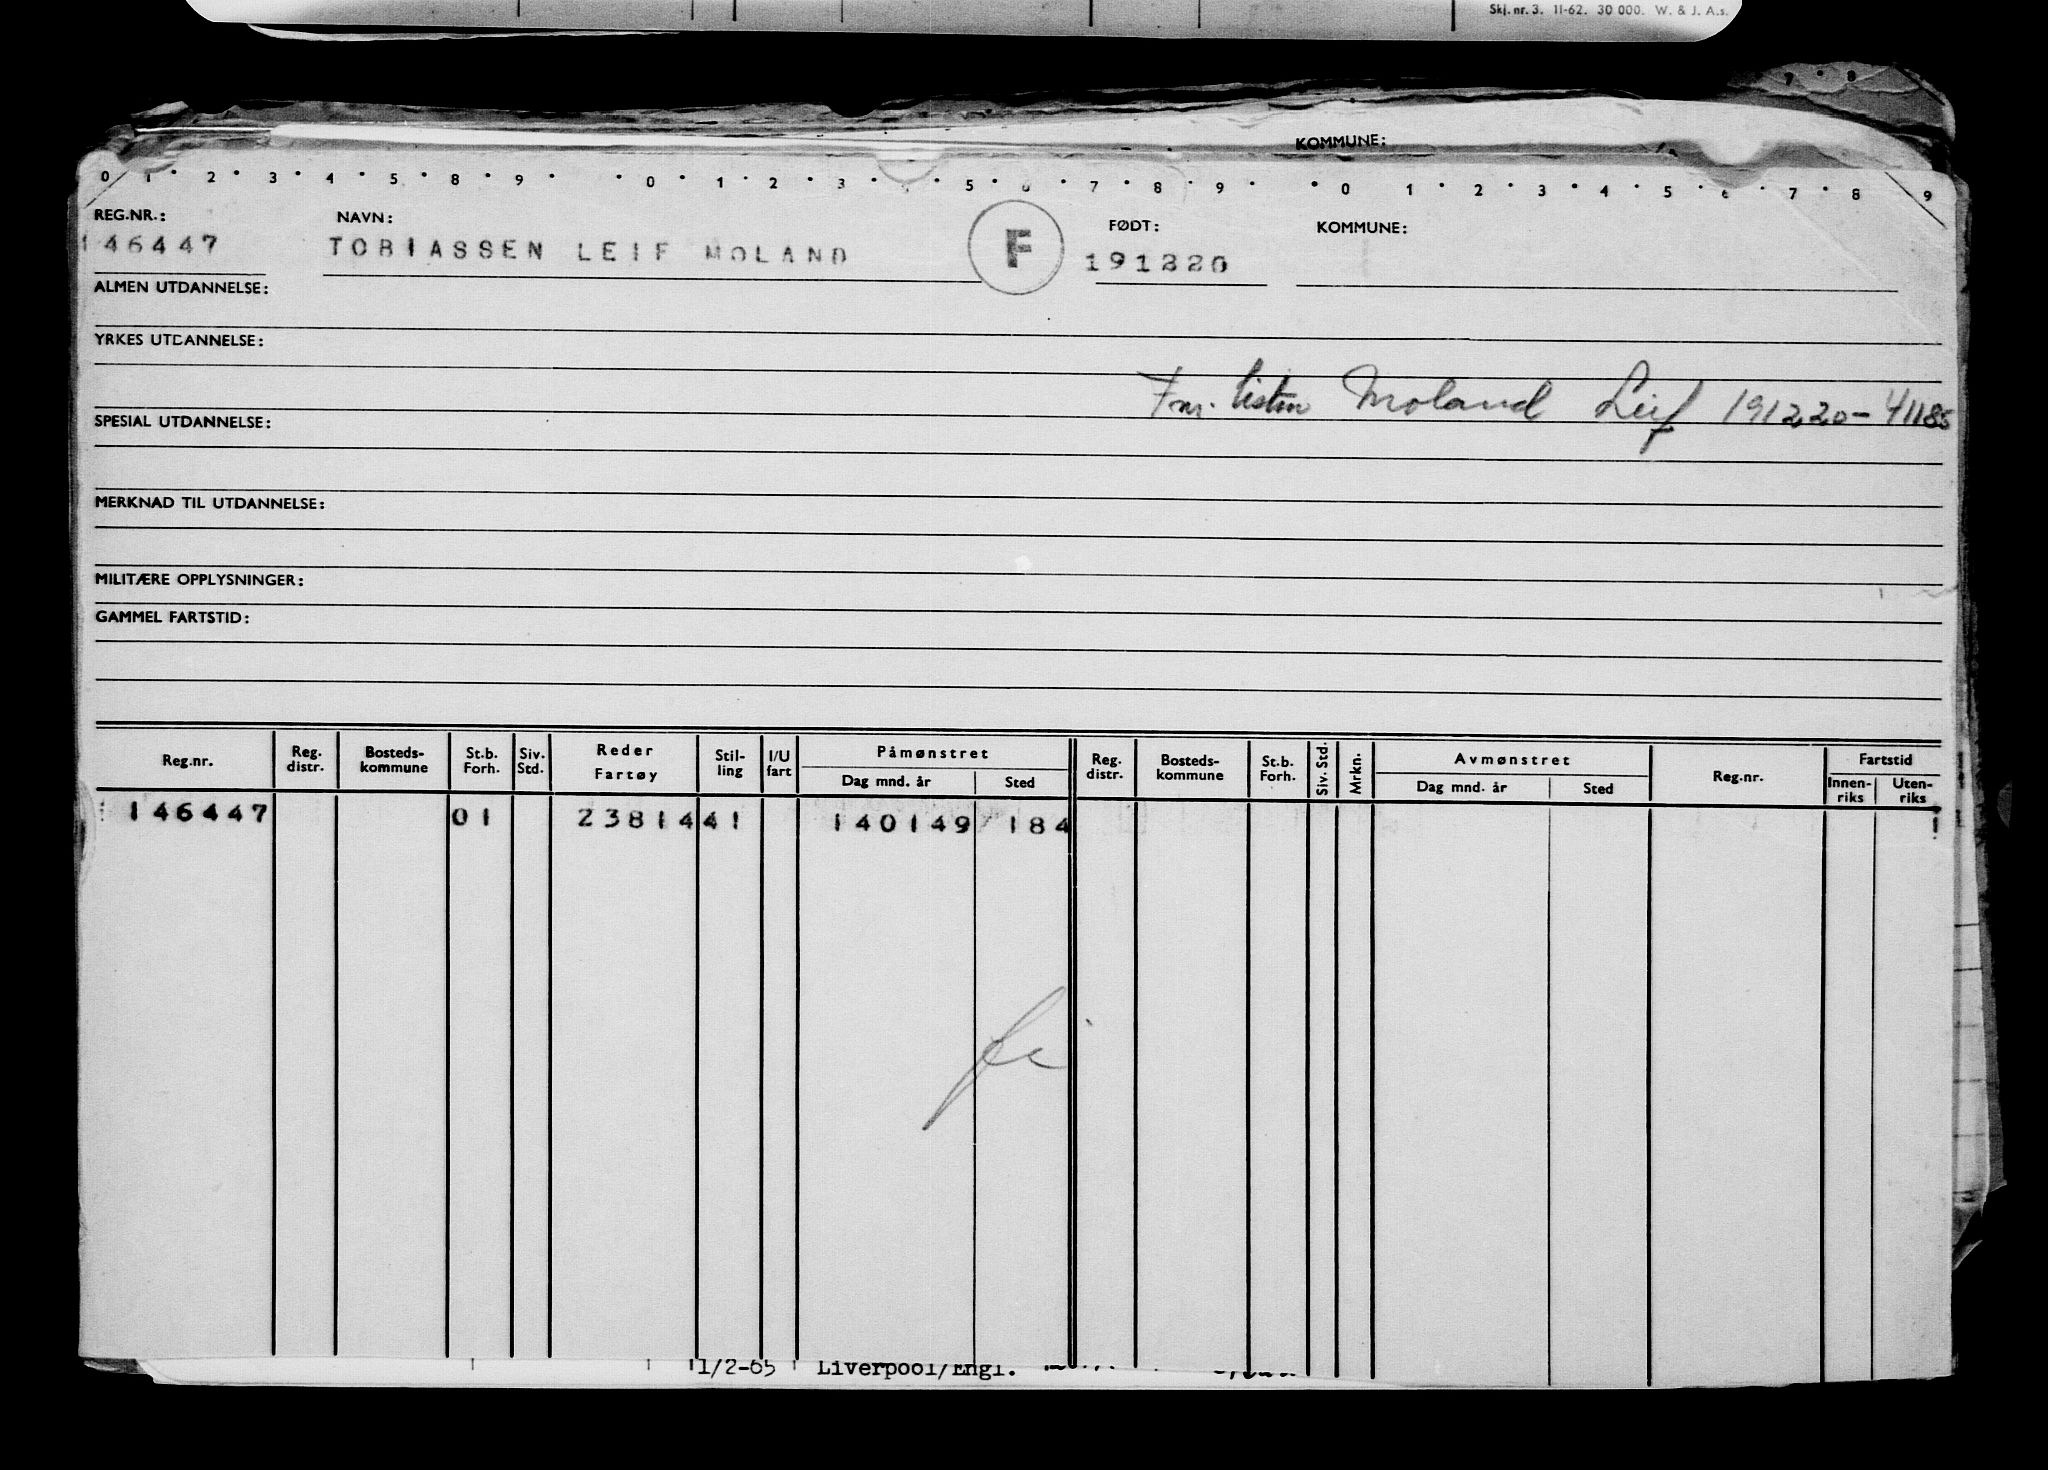 Skj. nr. 3. 11-62. 30 000. W. & J. A.s.
7 8
KOMMUNE:
0 1 2 3 4 5 8 9 0 1 2 3 5 6 7 8 9 0 1 2 3 4 5 6 7 8 9
REG.NR.: NAVN: F FØDT: KOMMUNE:
146447 TOBIASSEN LEIF MOLAND 191220
ALMEN UTDANNELSE:
YRKES UTDANNELSE:
Moland Leif 191220-41185
SPESIAL UTDANNELSE:
MERKNAD TIL UTDANNELSE:
MILITÆRE OPPLYSNINGER:
GAMMEL FARTSTID:
Reg.nr. Reg. distr. Bosteds-kommune St.b. Forh. Siv. Std. Reder Fartøy Stil-ling I/U fart Påmønstret Dag mnd. år Sted Reg. distr. Bosteds-kommune St.b. Forh. Siv. Std. Mrkn. Avmønstret Dag mnd. år Sted Reg.nr. Fartstid Innen-riks Uten-riks
146447 01 2381441 140149 184 1
11/2-65 Liverpool/Engl.